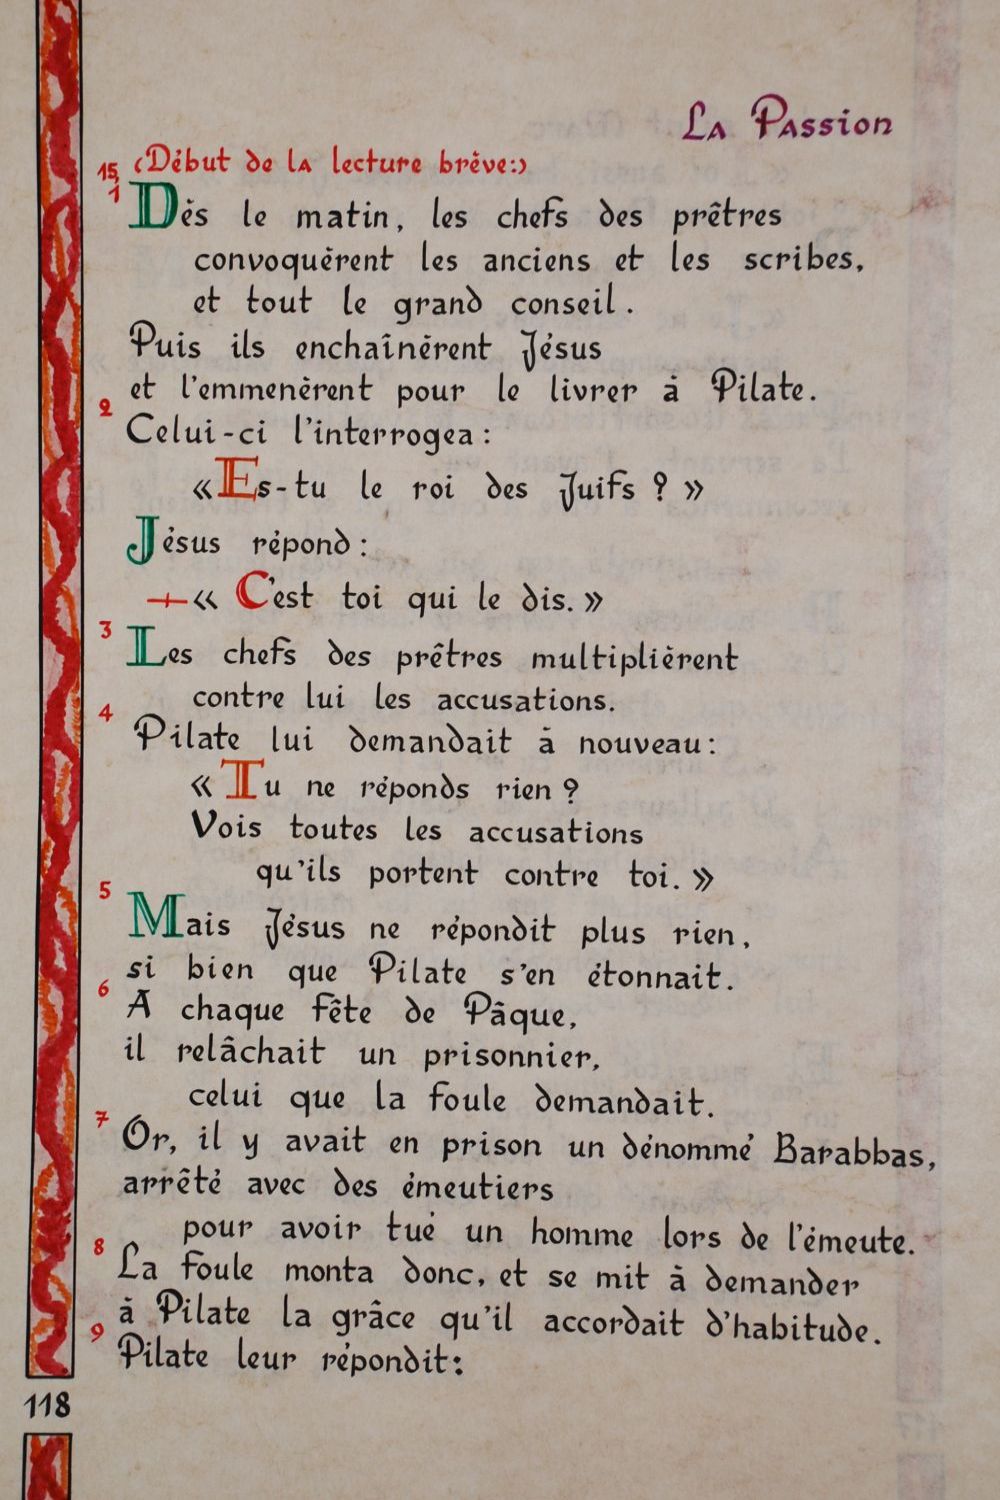 La Passion
15, (Début de la lecture brève:)
1 Dès le matin, les chefs des prêtres
convoquèrent les anciens et les scribes,
et tout le grand conseil.
Puis ils enchaînèrent Jésus
et l'emmenèrent pour le livrer à Pilate.
2 Celui-ci l'interrogea :
«Es-tu le roi des Juifs ? »
Jésus répond :
+« C'est toi qui le dis. »
3 Les chefs des prêtres multiplièrent
contre lui les accusations.
4 Pilate lui demandait à nouveau :
« Tu ne réponds rien ?
Vois toutes les accusations
qu'ils portent contre toi. »
5 Mais Jésus ne répondit plus rien,
si bien que Pilate s'en étonnait.
6 A chaque fête de Pâque,
il relâchait un prisonnier,
celui que la foule demandait.
7 Or, il y avait en prison un dénommé Barabbas,
arrêté avec des émeutiers
pour avoir tué un homme lors de l'émeute.
8 La foule monta donc, et se mit à demander
à Pilate la grâce qu'il accordait d'habitude.
9 Pilate leur répondit :
118